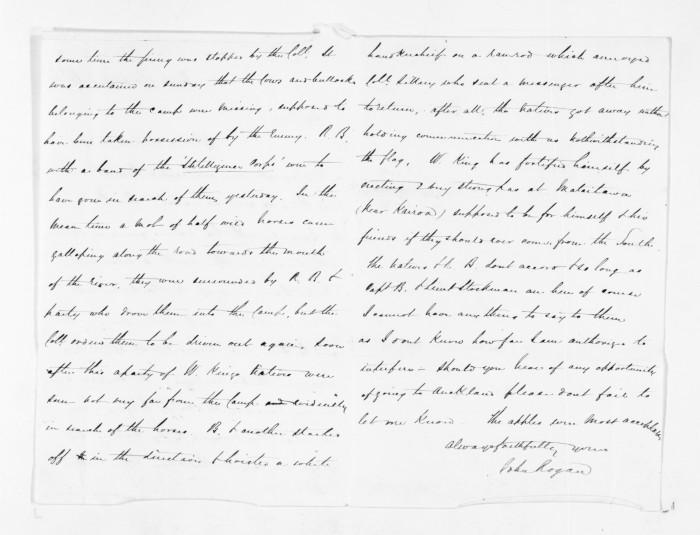 some time the firing was stopped by the Coll. It
was ascertained on sunday that the cows and bullocks
belonging to the camp were missing, supposed to
have been taken possession of by the Enemy. R. B.
with a band of the "Intelligence Corps" were to
have gone in search of them yesterday. In the
mean time a mob of half wild horses came
galloping along the road towards the mouth
of the river, they were surrounded by R. B &
party who drove them into the Camp, but the
Coll. orders them to be driven out again. Soon
after this a party of W. Kings Natives were
seen not very far from the Camp and evidently
in search of the horses. B. & another started
off in the direction & hoisted a white
handkerchief on a ramrod which annoyed
Coll. who sent a messenger after him
to return, after all, the Natives got away without
holding communication with us notwithstanding
the flag. W. King has fortified himself by
erecting 2 very strong pas at
(Near ) supposed to be for himself & his
friends if they should ever come from the South.
The Natives & R. B. dont accord & so long as
Capt B. & Lieut Stockman are here of course
I cannot have anything to say to them
as I dont know how far I am authorized to
interfere – should you hear of any opportunity
of going to Auckland please dont fail to
let me know. The apples were most acceptable
Always faithfully yours
John Rogan